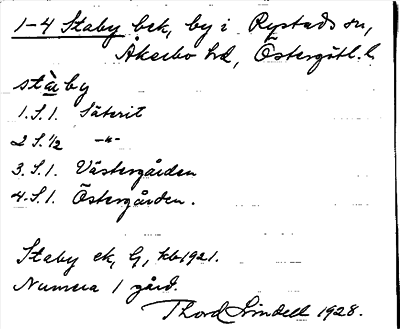 1-4 Staby bek, by i Rystads sn,
Åkerbo hd, Östergötl. l.
stäby
1. S. 1. Säterit
2 S. 1/2 -"-
3. S. 1. Västergården
4. S. 1. Östergården.
Staby ek, G, kb 1921.
Numera 1 gård.
Thord Lindell 1928.